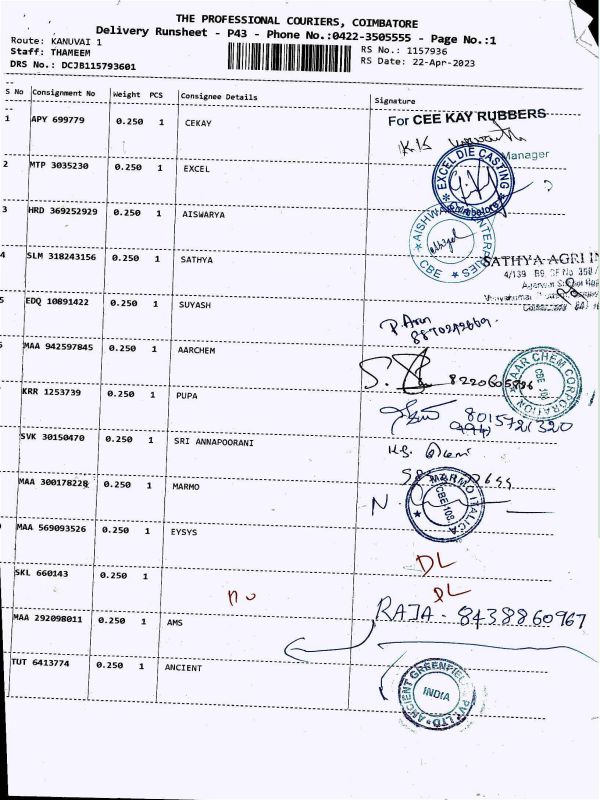 THE PROFESSIONAL COURIERS, COIMBATORE
Delivery Runsheet - P43 - Phone No.:0422-3505555 - Page No.:1
Route: KANUVAI 1
Staff: THAMEEM
DRS No.: DCJB115793601
RS No.: 1157936
RS Date: 22-Apr-2023
S No Consignment No Weight PCS Consignee Details Signature
1 APY 699779 0.250 1 CEKAY
For CEE KAY RUBBERS
Manager
2 MTP 3035230 0.250 1 EXCEL
EXCEL DIE CASTING
Coimbatore
3 HRD 369252929 0.250 1 AISWARYA
CBE
4 SLM 318243156 0.250 1 SATHYA
SATHYA AGRI
4/139
5 EDQ 10891422 0.250 1 SUYASH
MAA 942597845 0.250 1 AARCHEM
8220605896
AAR CHEM CORPORATION
CBE 108
KRR 1253739 0.250 1 PUPA
8015721320
SVK 30150470 0.250 1 SRI ANNAPOORANI
MAA 300178228 0.250 1 MARMO
N
MARMO ITALICA
CBE 108
MAA 569093526 0.250 1 EYSYS
DL
SKL 660143 0.250 1
no DL
MAA 292098011 0.250 1 AMS
RAJA - 8438860967
TUT 6413774 0.250 1 ANCIENT
ANCIENT GREENFIELD PVT LTD
INDIA